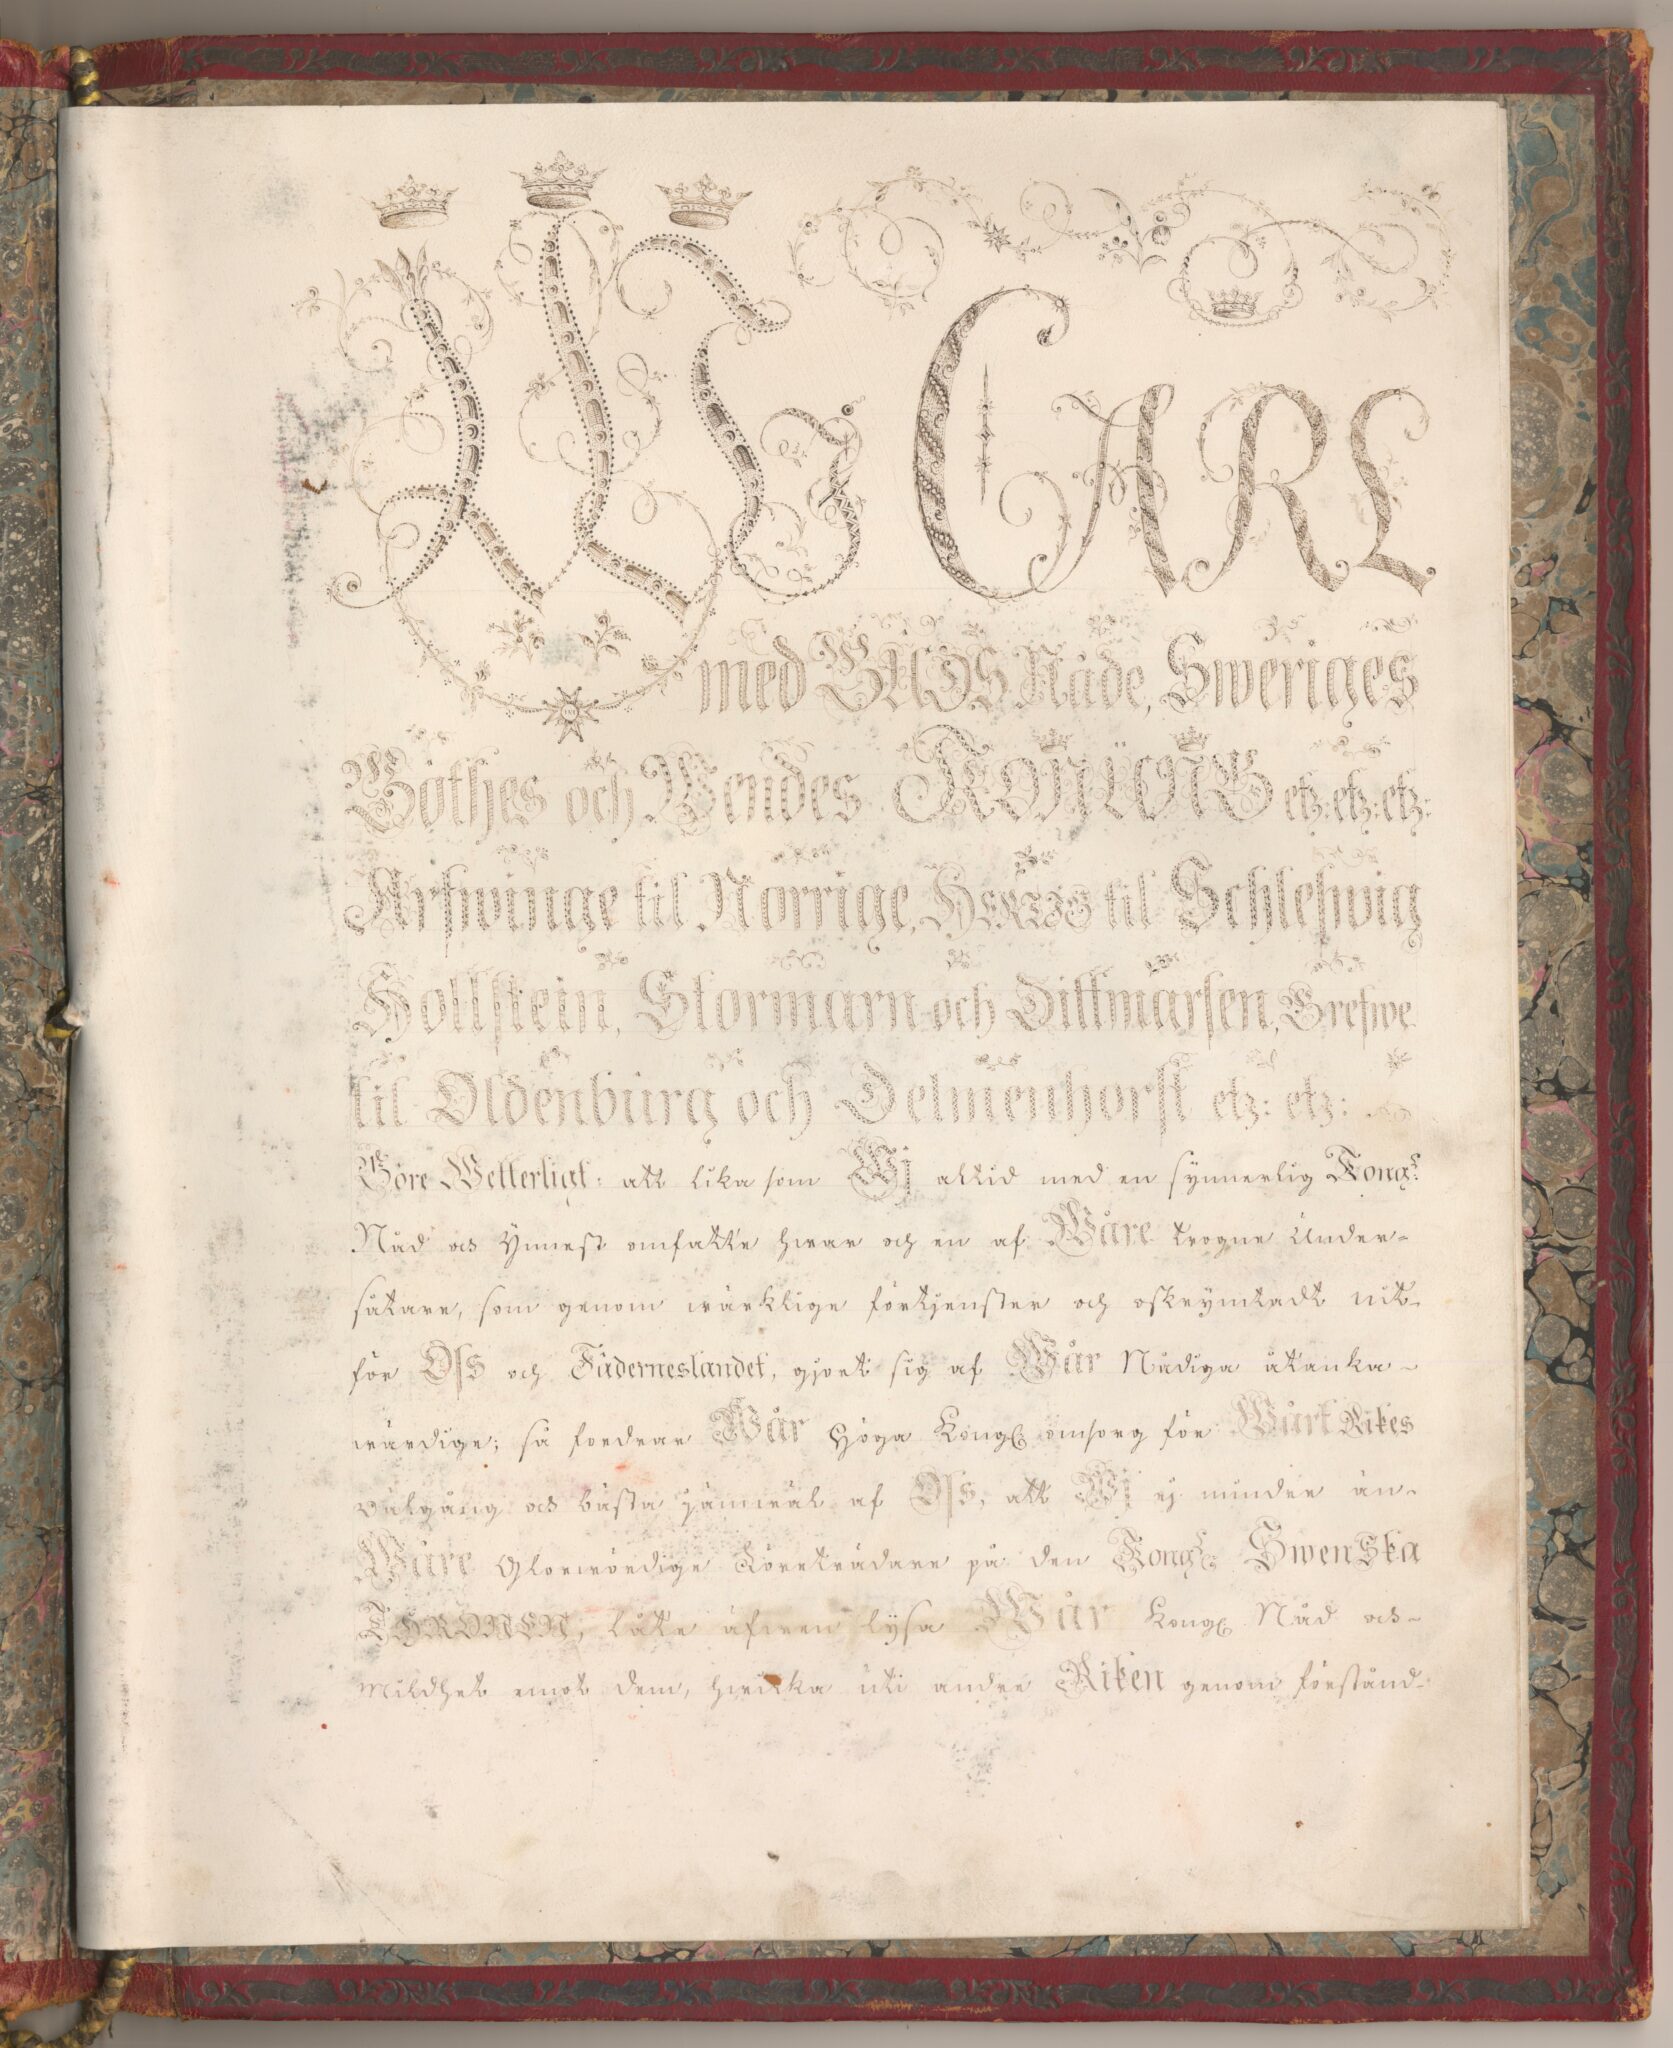 Wij CARL
med GUDS Nåde, Sweriges
Göthes och Wendes KONUNG etz: etz: etz:
Arfwinge til Norrige, HERTIG til Schleswig
Hollstein, Stormarn och Dittmarsen, Grefwe
til Oldenburg och Delmenhorst etz: etz:
Göre Wetterligt: att lika som Wij alltid med en synnerlig Kongl:
Nåd och Ynnest omfatte hwar och en af Wåre trogne Under-
såtare, som genom wärklige förtjenster och oskrymtadt nit
för Oss och Fäderneslandet, gjort sig af Wår Nådiga åtanka
wärdige; så fordrar Wår Höga Kongl omsorg för Wårt Rikes
välgång och bästa jämwäl af Oss, att Wij ej mindre än
Wåre Glorwördige Företrädare på den Kongl Swenska
THRONEN, låte äfwen lysa Wår Kongl Nåd och
Mildhet emot dem, hwilka uti andre Riken genom förstånd-